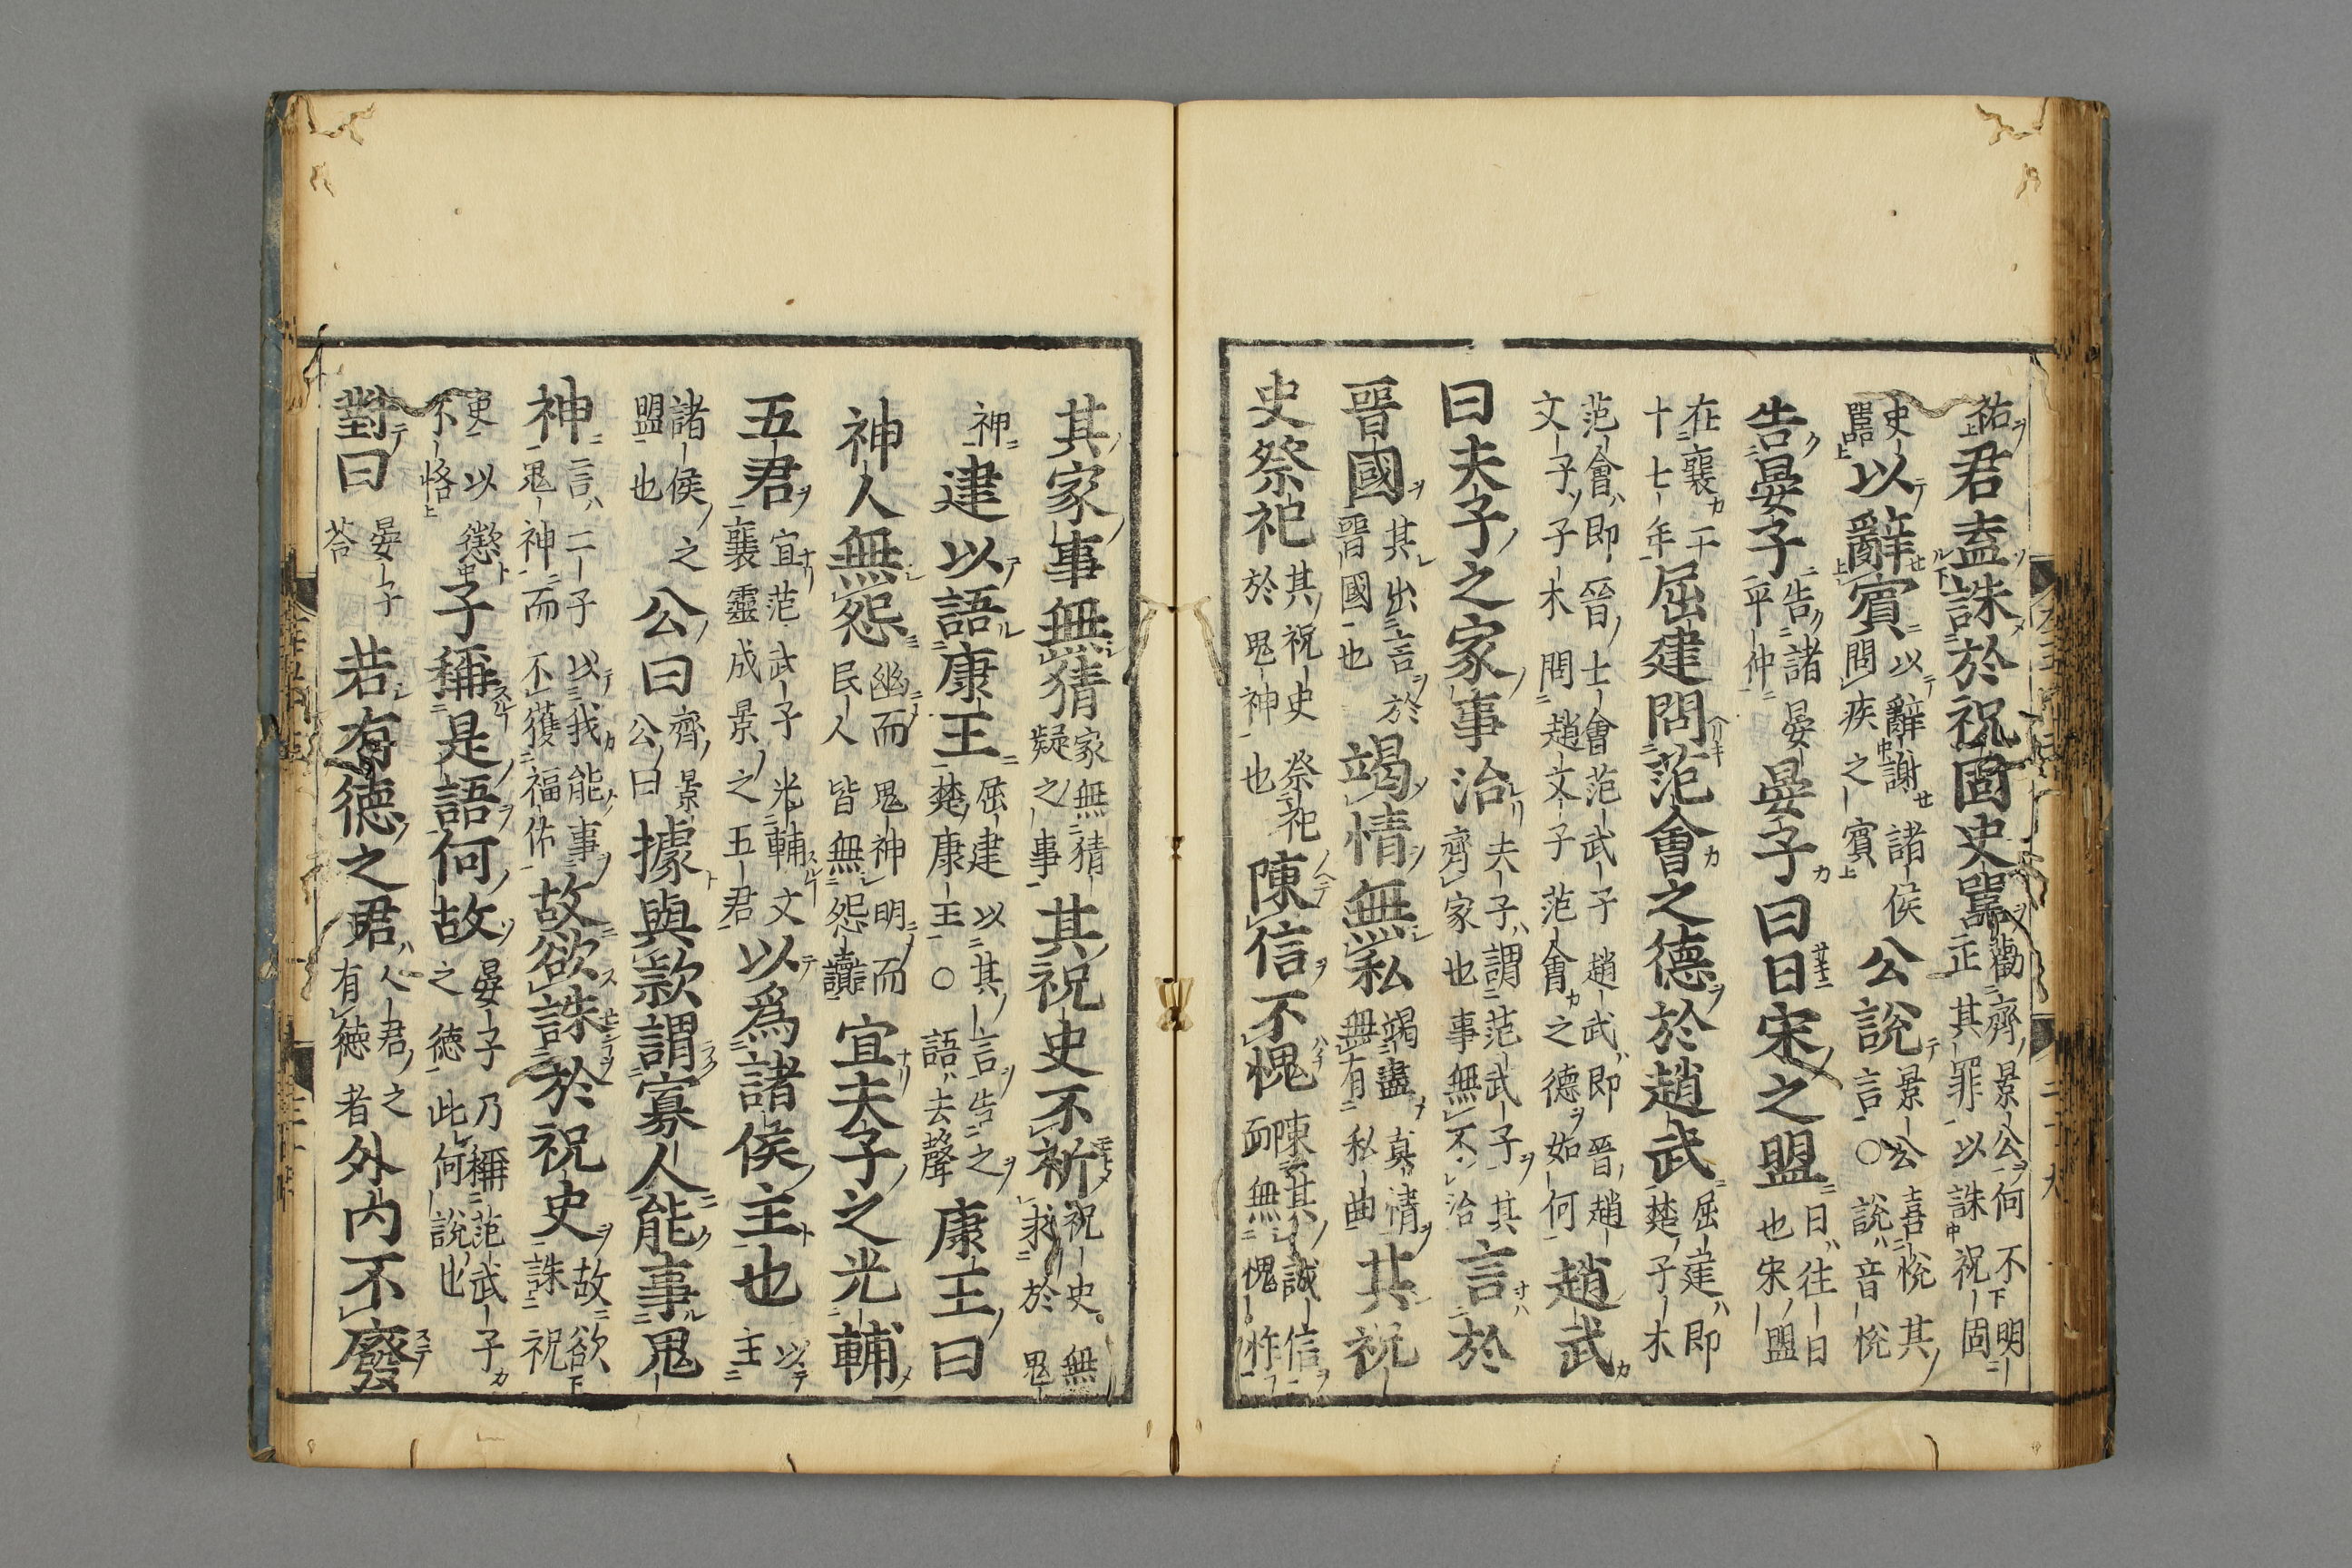 祐君盍誅於祝固史嚚勸齊景公何不明正其罪以誅祝固
史嚚以辭賓以辭謝諸侯問疾之賓公說景公喜悅其言○說音悅
告晏子告諸晏平仲晏子曰日宋之盟日往日也宋盟
在襄二十七年屈建問范會之德於趙武屈建即楚子木
范會即晉士會范武子趙武即晉趙文子子木問趙文子范會之德如何趙武
曰夫子之家事治夫子謂范武子其齊家也事無不治言於
晉國其出言於晉國也竭情無私竭盡真情無有私曲其祝
史祭祀其祝史祭祀於鬼神也陳信不愧陳其誠信而無愧怍
其家事無猜家無猜疑之事其祝史不祈祝史無求於鬼
神建以語康王屈建以其言告之楚康王○語去聲康王曰
神人無怨幽而鬼神明而民人皆無怨讟宜夫子之光輔
五君宜范武子光輔文襄靈成景之五君以爲諸侯主也以主
諸侯之盟也公曰齊景公曰據與款謂寡人能事鬼
神言二子以我能事鬼神而不獲福佑故欲誅於祝史故欲誅祝
史以懲不恪子稱是語何故晏子乃稱范武子之德此何說也
對曰晏子荅若有德之君人君之有德者外內不廢